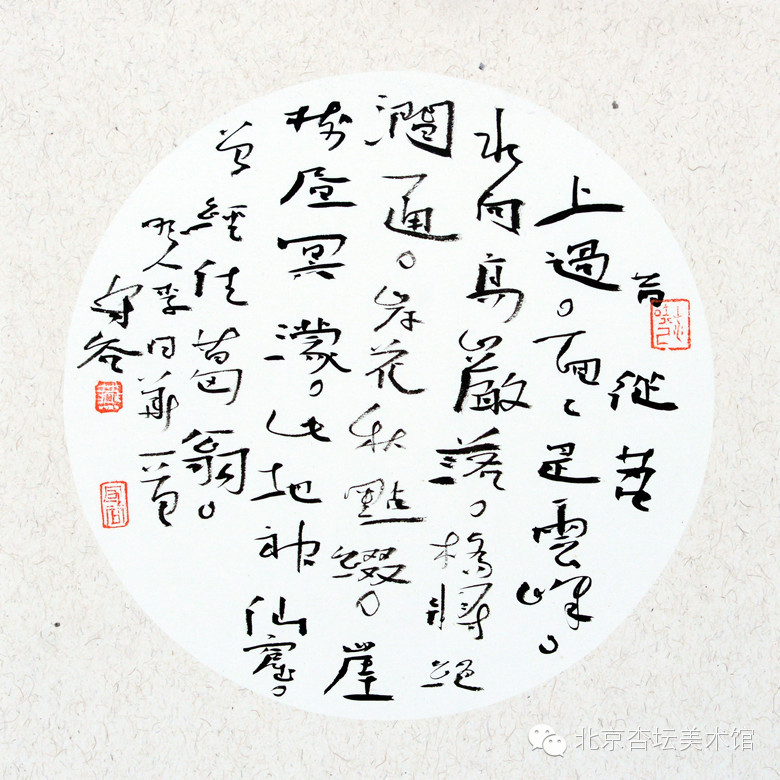 從苔
上過。面〻是雲峰。
水向高巖落。橋將絕
澗通。岸花秋點綴。崖
樹昼冥濛。此地神仙窟。
曾經住葛翁。
明人李日華一首
守谷
北京杏坛美术馆